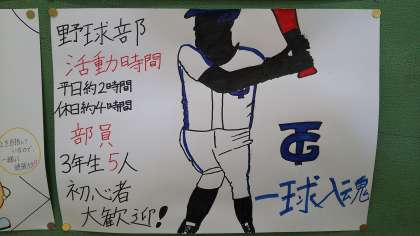 野球部
活動時間
平日約2時間
休日約4時間
部員
3年生5人
初心者
大歓迎!
TG
一球入魂